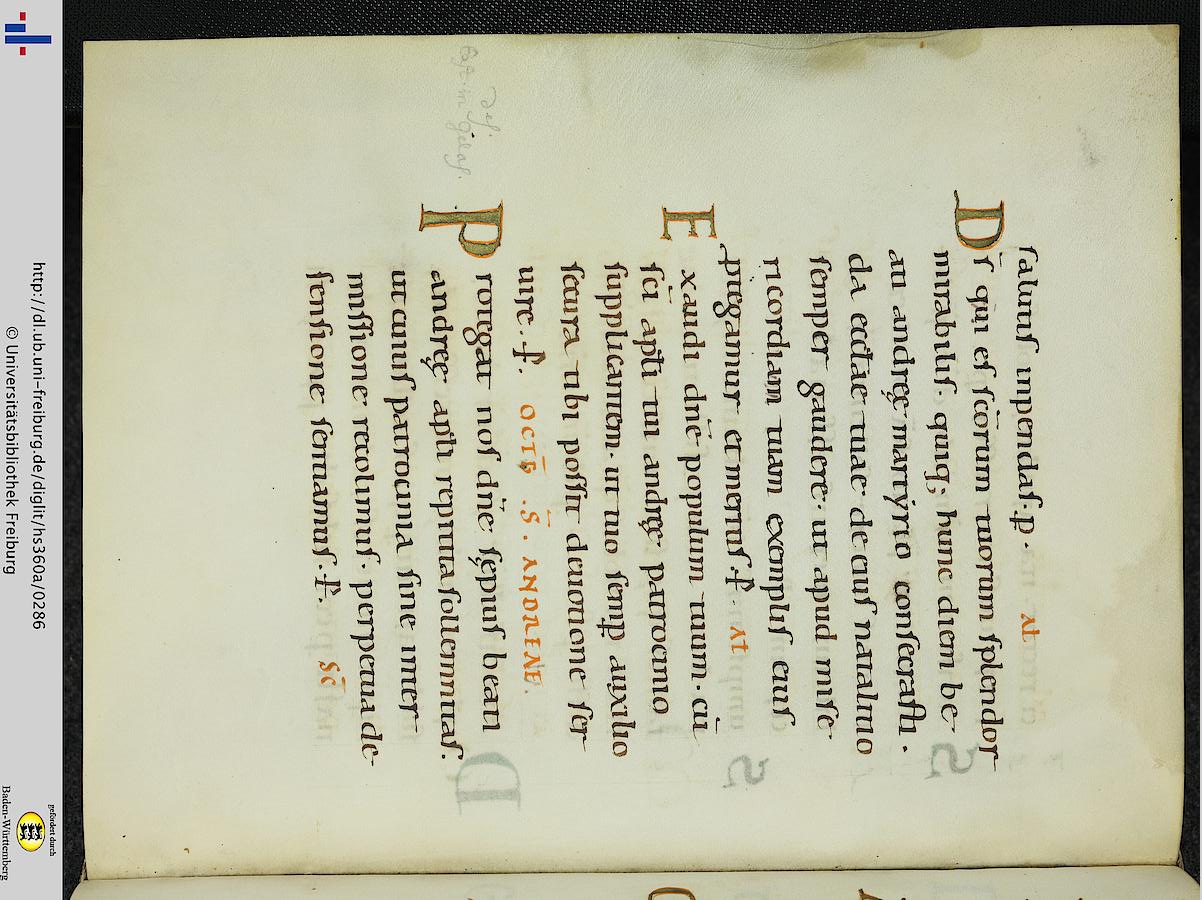 salutis inpendas. p. AL
D̄s qui es sc̄orum tuorum splendor
mirabilis. quiq; hunc diem be
ati andreę martyrio consecrasti.
da eccl̄ae tuae de eius natalitio
semper gaudere. ut apud mise
ricordiam tuam exemplis eius
ꝓtegamur et meritis. P̄. AL
Exaudi dn̄e populum tuum. cū
sc̄i apl̄i tui andreę patrocinio
supplicantem. ut tuo semꝑ auxilio
secura tibi possit deuotione ser
uire. P̄. OCTB̄. S̄. ANDREAE.
Protegat nos dn̄e sępius beati
andreę apl̄i repetita sollemnitas.
ut cuius patrocinia sine inter
missione recolimus. perpetua de
fensione sentiamus. P̄. SC̄
http://dl.ub.uni-freiburg.de/diglit/hs360a/0286
© Universitätsbibliothek Freiburg
gefördert durch
Baden-Württemberg